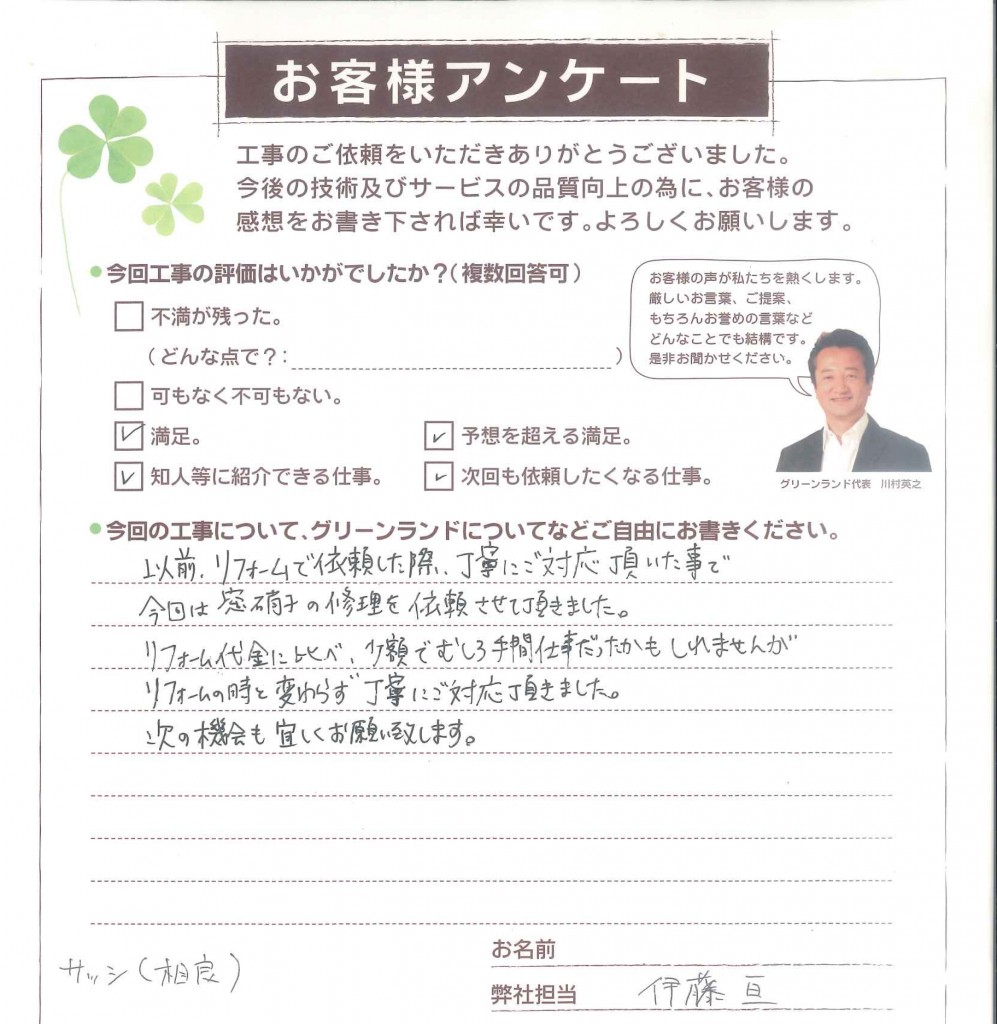 お客様アンケート
工事のご依頼をいただきありがとうございました。
今後の技術及びサービスの品質向上の為に、お客様の
感想をお書き下されば幸いです。よろしくお願いします。
今回工事の評価はいかがでしたか？（複数回答可）
不満が残った。
（どんな点で？：　）
可もなく不可もない。
満足。
予想を超える満足。
知人等に紹介できる仕事。
次回も依頼したくなる仕事。
お客様の声が私たちを熱くします。
厳しいお言葉、ご提案、
もちろんお誉めの言葉など
どんなことでも結構です。
是非お聞かせください。
グリーンランド代表　川村英之
今回の工事について、グリーンランドについてなどご自由にお書きください。
以前、リフォームで依頼した際、丁寧にご対応頂いた事で
今回は窓硝子の修理を依頼させて頂きました。
リフォーム代金に比べ、少額でむしろ手間仕事だったかもしれませんが
リフォームの時と変わらず丁寧にご対応頂きました。
次の機会も宜しくお願い致します。
お名前
サッシ（相良）
弊社担当　伊藤亘